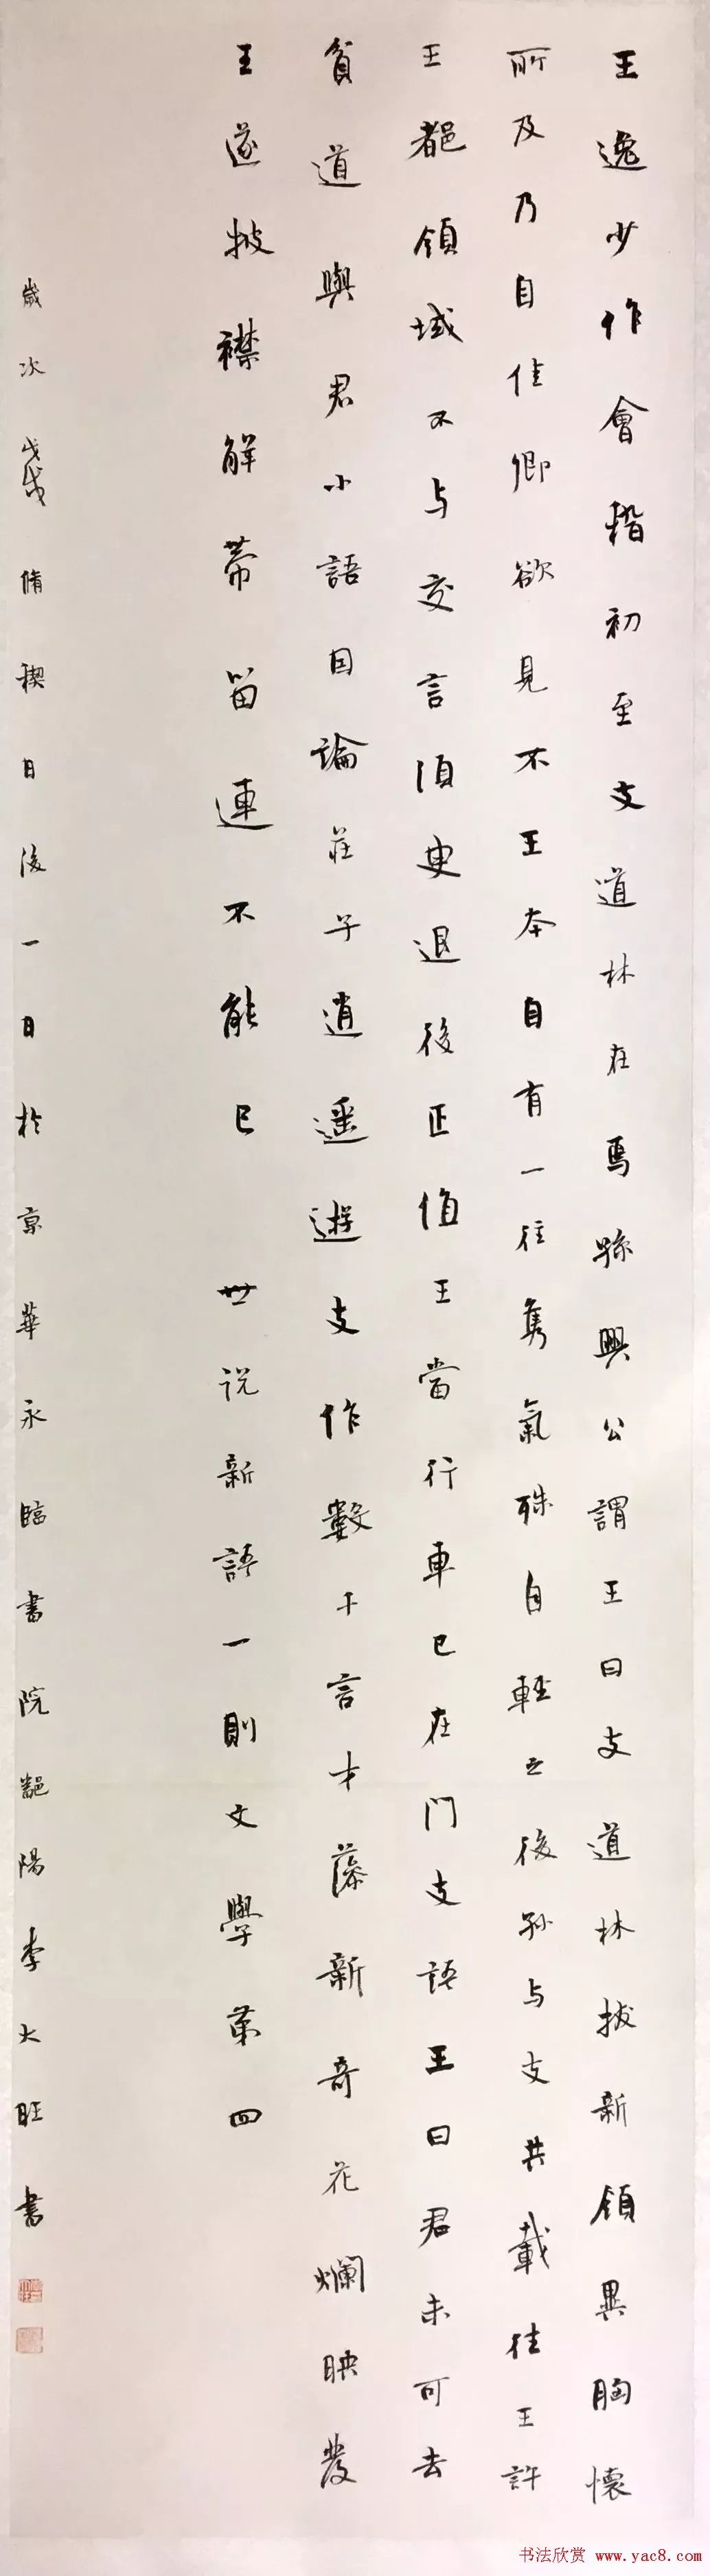 王逸少作會稽初至支道林在焉孫興公謂王曰支道林拔新領異胸懷
所及乃自佳卿欲見不王本自有一往雋氣殊自輕之後孫与支共載往王許
王都領域不与交言須臾退後正值王當行車已在門支語王曰君未可去
貧道與君小語因論莊子逍遙遊支作數千言才藻新奇花爛映發
王遂披襟解帶留連不能已 世说新語一則文學第四
歲次戊戌脩稧日後一日於京華永臨書院鄒陽李大旺書
书法欣赏 www.yac8.com